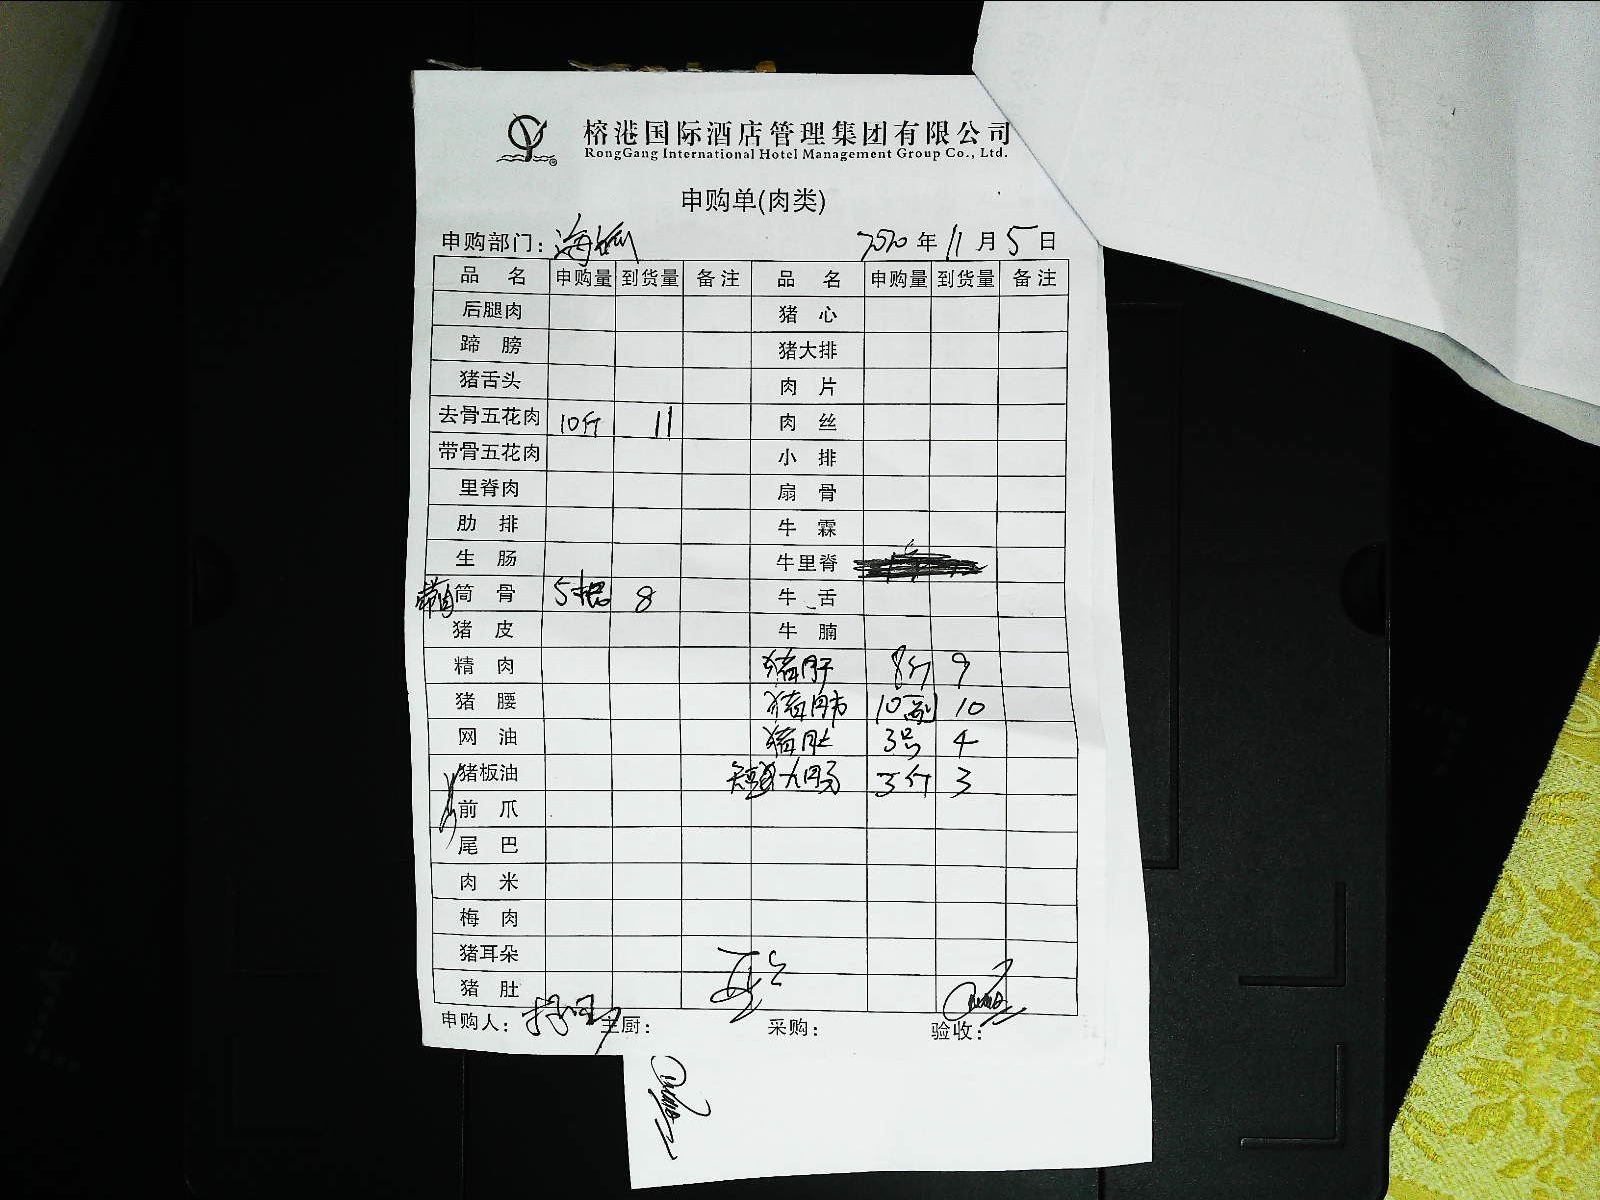 榕港国际酒店管理集团有限公司
RongGang International Hotel Management Group Co., Ltd.
申购单(肉类)
申购部门: 年 11 月 5 日
品 名 申购量 到货量 备注 品 名 申购量 到货量 备注
后腿肉 猪 心
蹄 膀 猪大排
猪舌头 肉 片
去骨五花肉 10斤 11 肉 丝
带骨五花肉 小 排
里脊肉 扇 骨
肋 排 牛 霖
生 肠 牛里脊
带肉筒 骨 5根 8 牛 舌
猪 皮 牛 腩
精 肉 猪肝 8斤 9
猪 腰 猪肺 10副 10
网 油 猪肚 3号 4
猪板油 3斤 3
前 爪
尾 巴
肉 米
梅 肉
猪耳朵
猪 肚
申购人: 主厨: 采购: 验收: